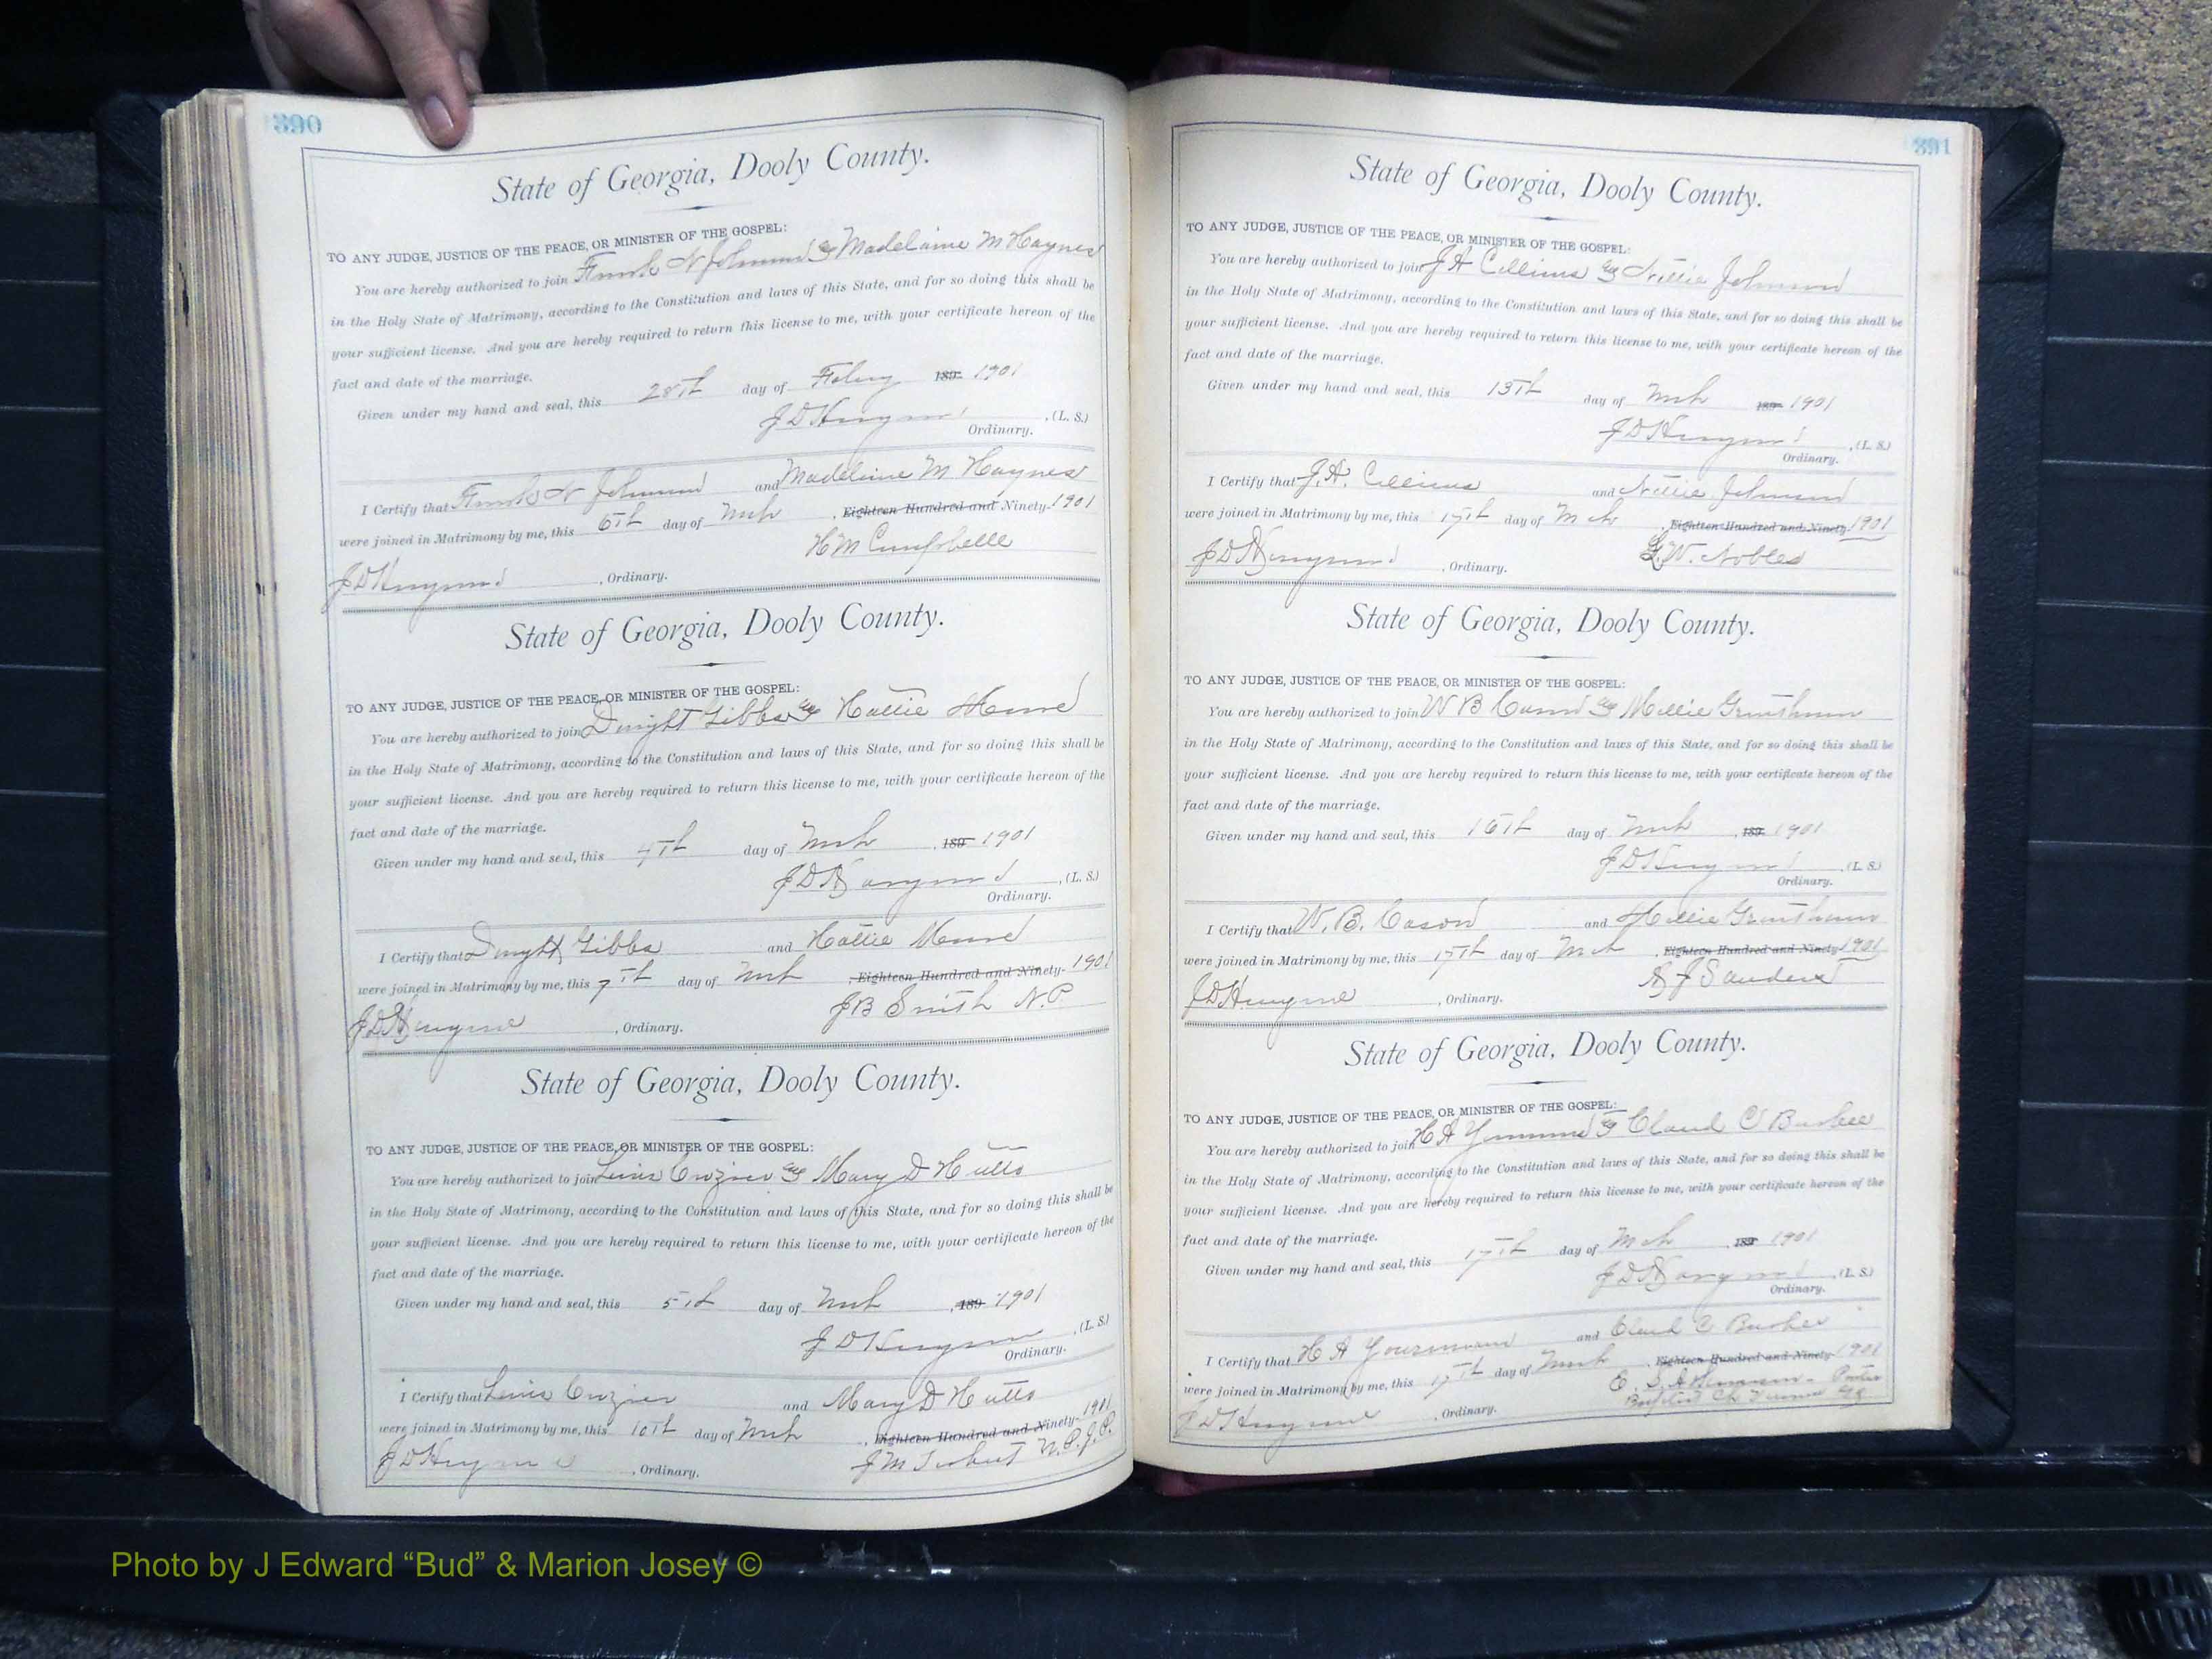 390
State of Georgia, Dooly County.
TO ANY JUDGE, JUSTICE OF THE PEACE, OR MINISTER OF THE GOSPEL:
You are hereby authorized to join Frank N Johnson & Madelaine M Haynes
in the Holy State of Matrimony, according to the Constitution and laws of this State, and for so doing this shall be
your sufficient license. And you are hereby required to return this license to me, with your certificate hereon of the
fact and date of the marriage.
Given under my hand and seal, this 28th day of Feby 189 1901
J D , (L. S.)
Ordinary.
I Certify that Frank N Johnson and Madelaine M Haynes
were joined in Matrimony by me, this 6th day of Mch , Eighteen Hundred and Ninety- 1901
H M Campbelle
J D , Ordinary.
State of Georgia, Dooly County.
TO ANY JUDGE, JUSTICE OF THE PEACE, OR MINISTER OF THE GOSPEL:
You are hereby authorized to join Dwight Gibbs & Hattie
in the Holy State of Matrimony, according to the Constitution and laws of this State, and for so doing this shall be
your sufficient license. And you are hereby required to return this license to me, with your certificate hereon of the
fact and date of the marriage.
Given under my hand and seal, this 4th day of Mch , 189 1901
J D , (L. S.)
Ordinary.
I Certify that Dwight Gibbs and Hattie
were joined in Matrimony by me, this 7th day of Mch , Eighteen Hundred and Ninety- 1901
J B Smith N.P
J D , Ordinary.
State of Georgia, Dooly County.
TO ANY JUDGE, JUSTICE OF THE PEACE, OR MINISTER OF THE GOSPEL:
You are hereby authorized to join Lewis Crozier & Mary D Hutto
in the Holy State of Matrimony, according to the Constitution and laws of this State, and for so doing this shall be
your sufficient license. And you are hereby required to return this license to me, with your certificate hereon of the
fact and date of the marriage.
Given under my hand and seal, this 5th day of Mch , 189 1901
J D , (L. S.)
Ordinary.
I Certify that Lewis Crozier and Mary D Hutto
were joined in Matrimony by me, this 10th day of Mch , Eighteen Hundred and Ninety- 1901
J M N.P.J.P.
J D , Ordinary.
391
State of Georgia, Dooly County.
TO ANY JUDGE, JUSTICE OF THE PEACE, OR MINISTER OF THE GOSPEL:
You are hereby authorized to join J A Collins & Nellie Johnson
in the Holy State of Matrimony, according to the Constitution and laws of this State, and for so doing this shall be
your sufficient license. And you are hereby required to return this license to me, with your certificate hereon of the
fact and date of the marriage.
Given under my hand and seal, this 13th day of Mch 189 1901
J D , (L. S.)
Ordinary.
I Certify that J. A. Collins and Nellie Johnson
were joined in Matrimony by me, this day of Mch , Eighteen Hundred and Ninety 1901
G. W. Nobles
J D , Ordinary.
State of Georgia, Dooly County.
TO ANY JUDGE, JUSTICE OF THE PEACE, OR MINISTER OF THE GOSPEL:
You are hereby authorized to join W B Cason & Mollie Grantham
in the Holy State of Matrimony, according to the Constitution and laws of this State, and for so doing this shall be
your sufficient license. And you are hereby required to return this license to me, with your certificate hereon of the
fact and date of the marriage.
Given under my hand and seal, this 16th day of Mch , 189 1901
J D , (L. S.)
Ordinary.
I Certify that W. B. Cason and Mollie Grantham
were joined in Matrimony by me, this 17th day of Mch , Eighteen Hundred and Ninety 1901
J Sanders
J D , Ordinary.
State of Georgia, Dooly County.
TO ANY JUDGE, JUSTICE OF THE PEACE, OR MINISTER OF THE GOSPEL:
You are hereby authorized to join H A & Claud C Busbee
in the Holy State of Matrimony, according to the Constitution and laws of this State, and for so doing this shall be
your sufficient license. And you are hereby required to return this license to me, with your certificate hereon of the
fact and date of the marriage.
Given under my hand and seal, this 17th day of Mch , 189 1901
J D , (L. S.)
Ordinary.
I Certify that H A and Claud C Busbee
were joined in Matrimony by me, this 17th day of Mch , Eighteen Hundred and Ninety 1901
Baptist Ch Vienna Ga
J D , Ordinary.
Photo by J Edward “Bud” & Marion Josey ©